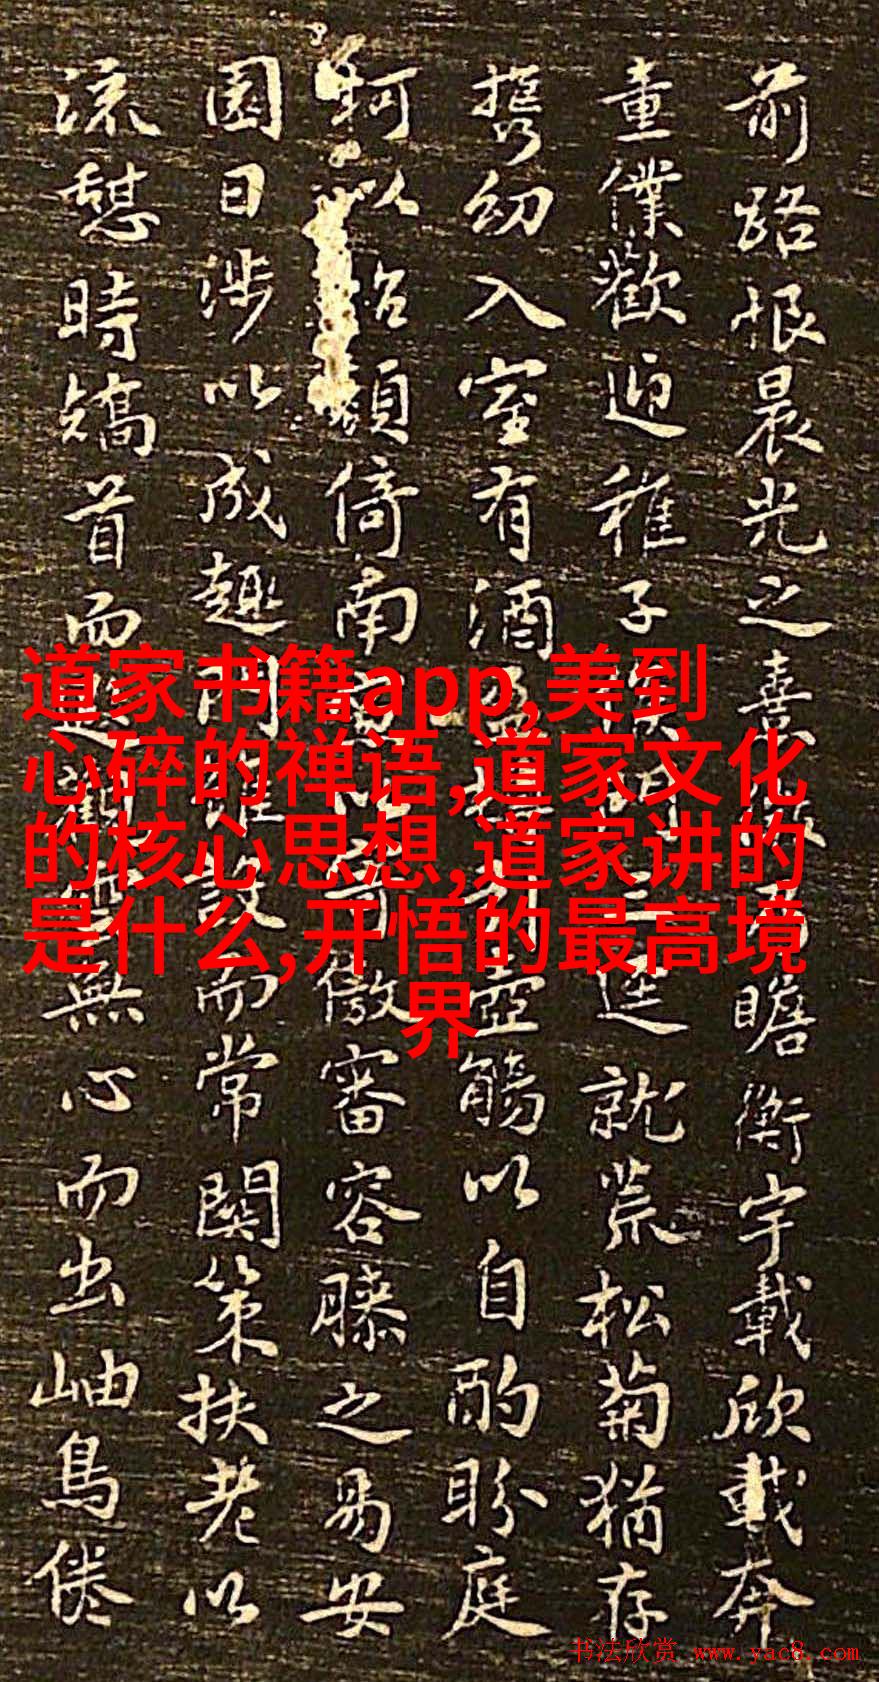 前路恨晨光之熹微乃瞻衡宇載欣載奔
童僕歡迎稚子候門三逕就荒松菊猶存
攜幼入室有酒盈樽引壺觴以自酌眄庭
柯以怡顏倚南窗以寄傲審容膝之易安
園日涉以成趣門雖設而常關策扶老以
流憩時矯首而遐觀雲無心而出岫鳥倦
道家书籍app,美到
心碎的禅语,道家文化
的核心思想,道家讲的
是什么,开悟的最高境
界
书法欣赏 www.yac8.com